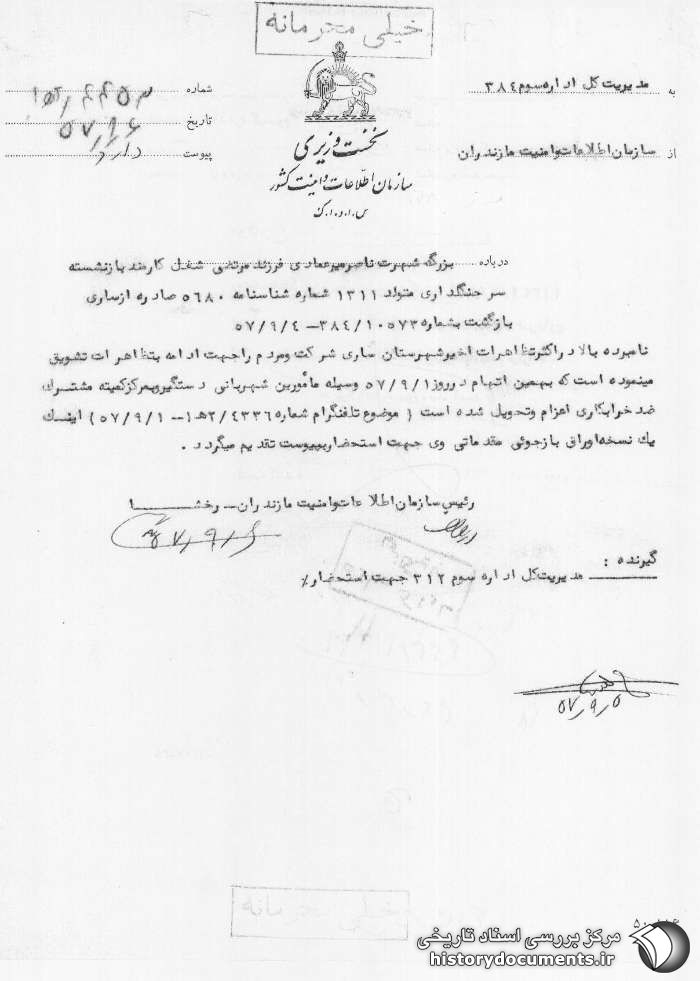 خیلی محرمانه
به مدیریت کل اداره سوم ۳۸۴
از سازمان اطلاعات وامنیت مازندران
نخست وزیری
سازمان اطلاعات و امنیت کشور
س.ا.و.ا.ک
شماره
تاریخ ۵۷/۹/۶
پیوست دارد
درباره بزرگ شهرت ناصرمیرعمادی فرزند مرتضی شغل کارمند بازنشسته
سرجنگلداری متولد ۱۳۱۱ شماره شناسنامه ۵۶۸۰ صادره ازساری
بازگشت بشماره ۳۸۴/۱۰۵۷۳-۵۷/۹/۴
نامبرده بالا در اکثرتظاهرات اخیرشهرستان ساری شرکت ومردم راجهت ادامه بتظاهرات تشویق
مینموده است که بهمین اتهام درروز ۵۷/۹/۱ وسیله مأمورین شهربانی دستگیروبمرکزکمیته مشترک
ضدخرابکاری اعزام وتحویل شده است ( موضوع تلفنگرام شماره ۲/۴۳۳۶هـ۱-۵۷/۹/۱) اینک
یک نسخه اوراق بازجوئی مقدماتی وی جهت استحضارپیوست تقدیم میگردد .
رئیس سازمان اطلاعات وامنیت مازندران- رخشا
۵۷/۹/۶
گیرنده :
مدیریت کل اداره سوم ۳۱۲ جهت استحضار٪
۵۷/۹/۵
خیلی محرمانه
مرکز بررسی اسناد تاریخی
historydocuments.ir